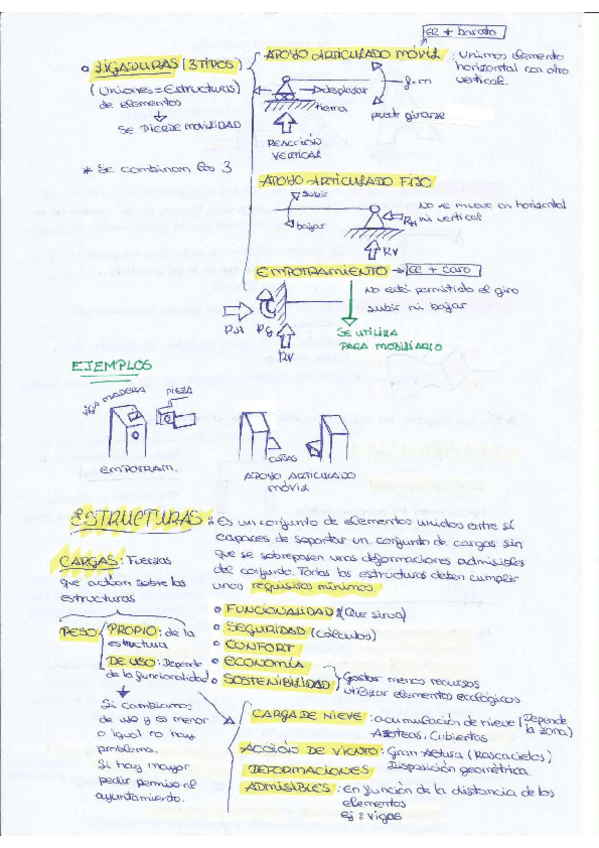 EL + barato
• LIGADURAS (3 TIPOS)
(Uniones = Estructuras)
de elementos
SE PIERDE MOVILIDAD
* Se combinan los 3
APOYO ARTICULADO MÓVIL : Unimos elemento
horizontal con otro
vertical.
Desplazar
tierra
puede girarse
REACCIÓN
VERTICAL
APOYO ARTICULADO FIJO
subir
bajar
No se mueve en horizontal
ni vertical
RH
RV
EMPOTRAMIENTO → EL + caro
No está permitido el giro
subir ni bajar
RH
Rg
RV
SE UTILIZA
PARA MOBILIARIO
EJEMPLOS
VIGA MADERA
PIEZA
EMPOTRAM.
CUÑAS
APOYO ARTICULADO
MÓVIL
ESTRUCTURAS : Es un conjunto de elementos unidos entre sí
capaces de soportar un conjunto de cargas sin
que se sobrepasen unas deformaciones admisibles
del conjunto. Todas las estructuras deben cumplir
unos requisitos mínimos.
CARGAS: Fuerzas
que actúan sobre las
estructuras
PESO
PROPIO: de la
estructura
DE USO: Depende
de la funcionalidad
Si cambiamos
de uso y es menor
o igual no hay
problema.
Si hay mayor
pedir permiso al
ayuntamiento.
• FUNCIONALIDAD (Que sirva)
• SEGURIDAD (Cálculos)
• CONFORT
• ECONOMÍA
• SOSTENIBILIDAD
Gastar menos recursos
utilizar elementos ecológicos
CARGA DE NIEVE : acumulación de nieve (Depende
la zona)
Azoteas. Cubiertas
ACCIÓN DE VIENTO : Gran Altura (Rascacielos)
Disposición geométrica.
DEFORMACIONES
ADMISIBLES : En función de la distancia de los
elementos
Ej: vigas